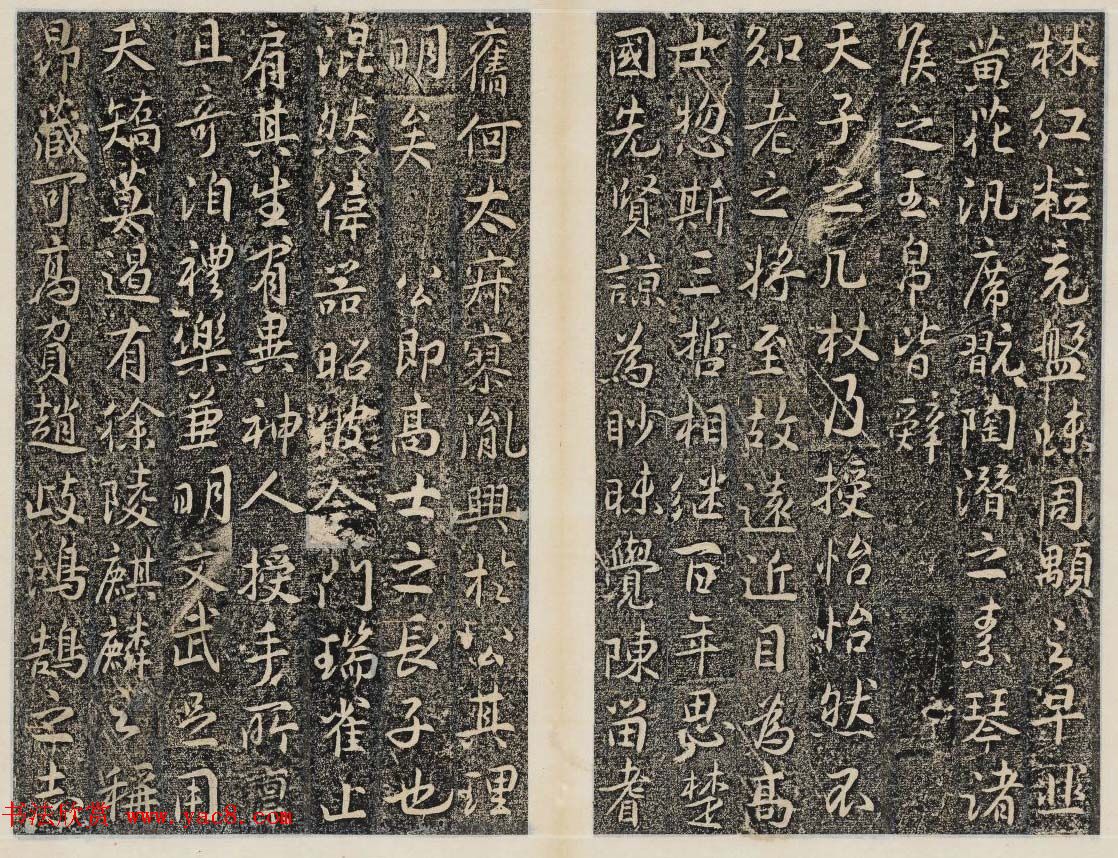 林红粒充盤味周顒之早韮
黄花汎席翫陶潛之素琴諸
侯之玉帛皆辭
天子之几杖乃授怡怡然不
知老之將至故遠近目為髙
士惣斯三哲相継百年思楚
國先賢諒為眇昧覺陳留耆
舊何太寂寥胤興於公其理
明矣 公即髙士之長子也
混然偉器昭彼令門瑞雀止
肩其生有異神人授手所稟
且奇洎禮樂兼明文武足用
夭矯莫遏有徐陵麒麟之稱
昂藏可髙負趙歧鴻鵠之志
书法欣赏 www.yac8.com